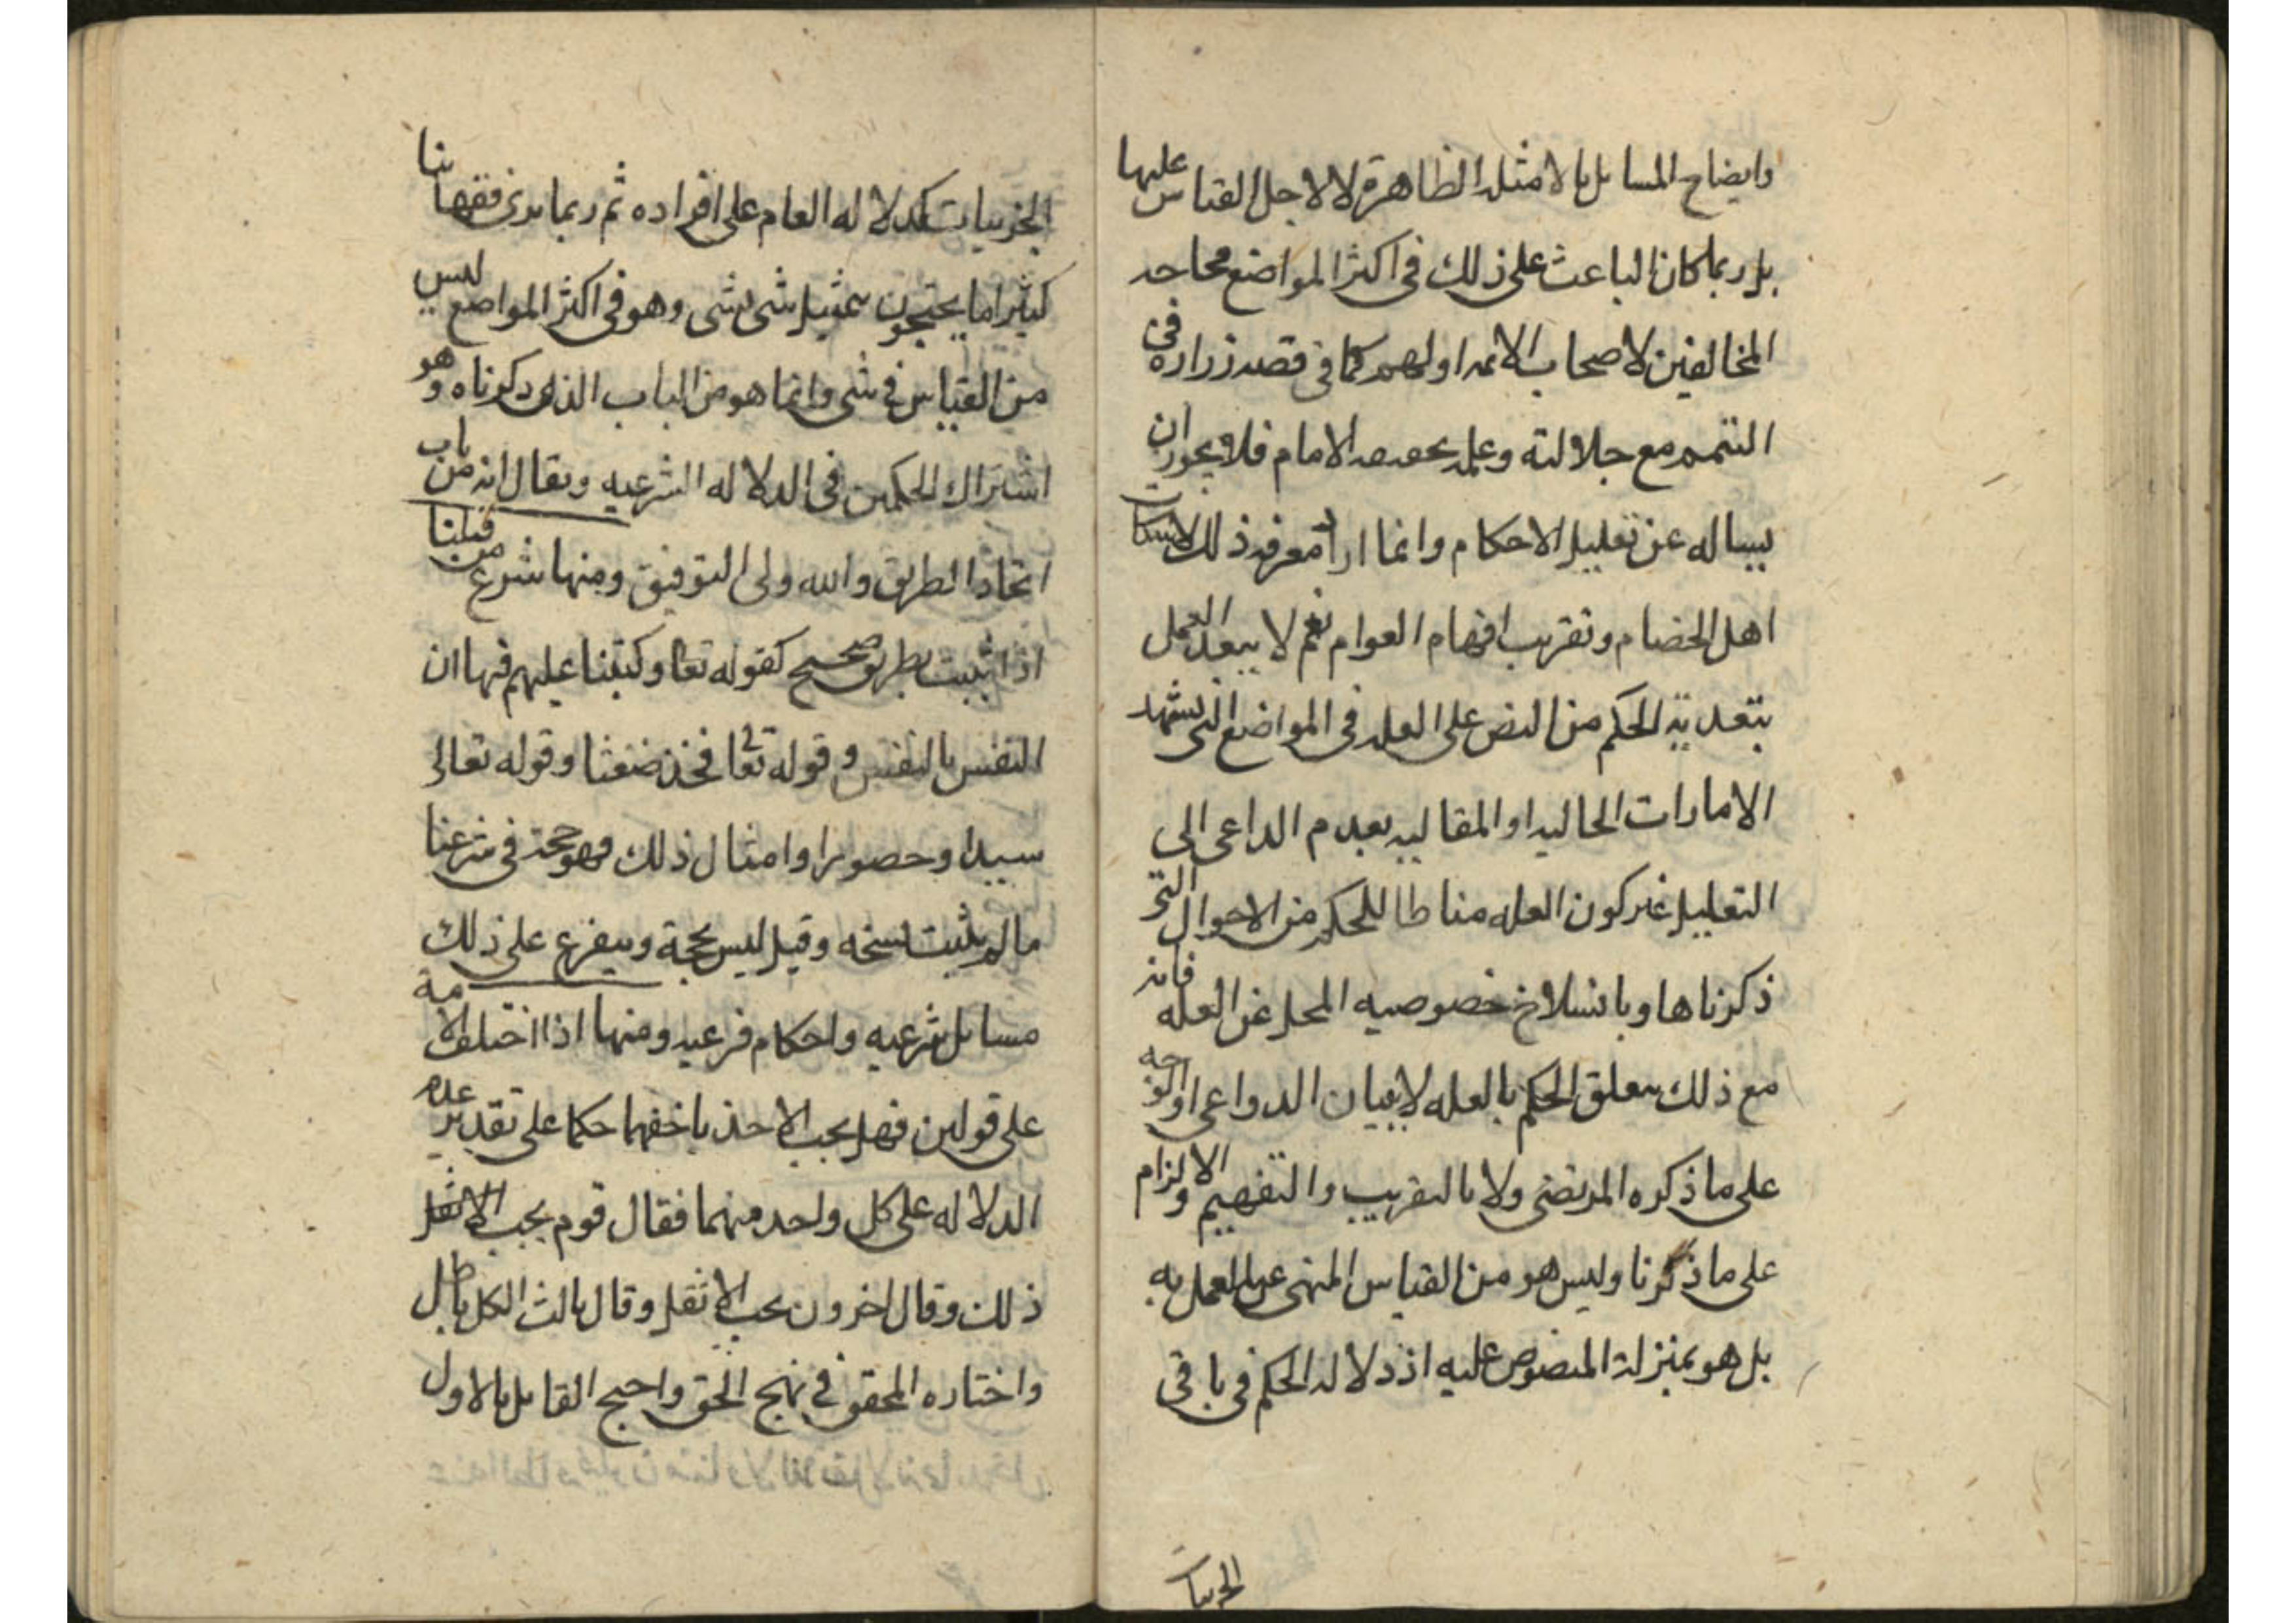 وايضاح المسايل بالامثله الظاهرة لا لاجل القياس عليها
بل ربما كان الباعث على ذلك فى اكثر المواضع محاجه
المخالفين لاصحاب الائمه او لهم كما فى قصه زراره فى
التيمم مع جلالته وعلمه بعصمه الامام فلا يجوز ان
يساله عن تعليل الاحكام وانما اراد معرفه ذلك لاسكات
اهل الخصام وتقريب افهام العوام نعم لا يبعد العمل
بتعدية الحكم من النص على العله فى المواضع التى تشهد
الامارات الحاليه او المقاليه بعدم الداعى الى
التعليل غير كون العله مناطا للحكم من الاحوال التى
ذكرناها وبانسلاخ خصوصيه المحل عن العله فانه
مع ذلك يتعلق الحكم بالعله لا ببيان الدواعى او الوجه
على ما ذكره المرتضى ولا بالتقريب والتفهيم والالزام
على ما ذكرنا وليس هو من القياس المنهى عن العمل به
بل هو بمنزلة المنصوص عليه اذ دلاله الحكم فى باقى
الجزييات
الجزييات كدلاله العام على افراده ثم ربما يرى فقهاىنا
كثيرا ما يحتجون بتمثيل شى بشى وهو فى اكثر المواضع ليس
من القياس فى شى وانما هو من الباب الذى ذكرناه وهو
اشتراك الحكمين فى الدلاله الشرعيه ويقال انه من باب
اتحاد الطريق والله ولى التوفيق ومنها شرع من قبلنا
اذا ثبت بطريق صحيح كقوله تعا وكتبنا عليهم فيها ان
النفس بالنفس وقوله تعالى فخذ ضغثا وقوله تعالى
سيدا وحصورا وامثال ذلك فهو حجة فى شرعنا
ما لم يثبت نسخه وقيل ليس بحجة ويتفرع على ذلك
مسايل شرعيه واحكام فرعيه ومنها اذا اختلف الامة
على قولين فهل يجب الاخذ باخفهما حكما على تقدير عدم
الدلاله على كل واحد منهما فقال قوم يجب الاثقل
ذلك وقال اخرون يجب الاثقل وقال ثالث الكل باطل
واختاره المحقق فى نهج الحق واحتج القايل بالاول